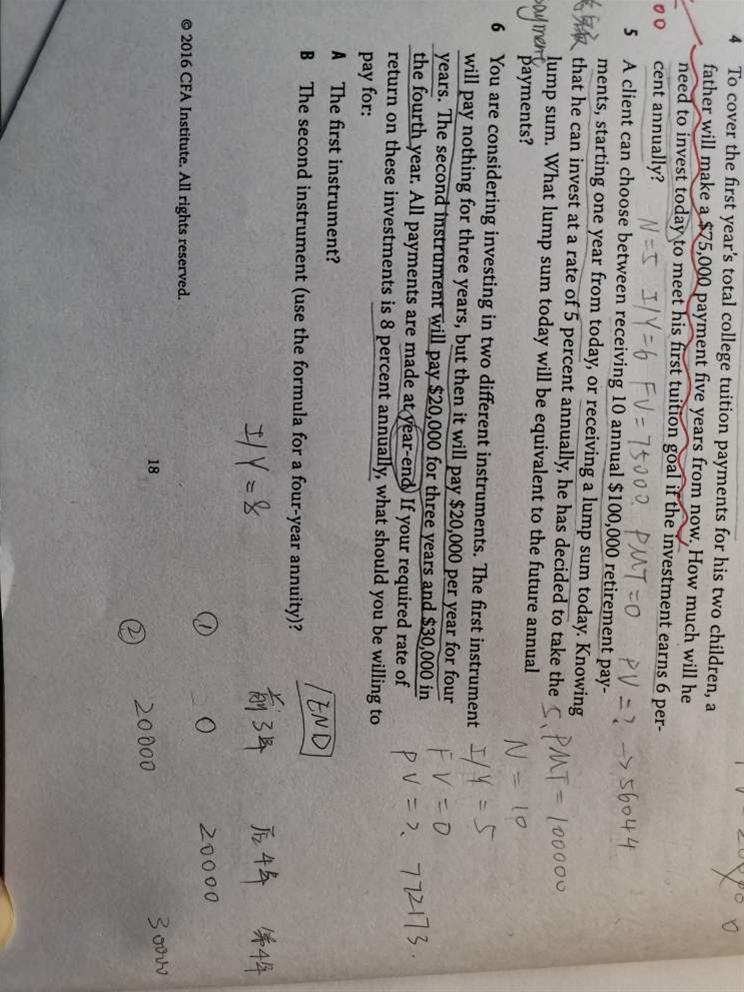 4 To cover the first year's total college tuition payments for his two children, a
father will make a $75,000 payment five years from now. How much will he
need to invest today to meet his first tuition goal if the investment earns 6 per-
cent annually?
N=5 I/Y=6 FV=75000. PMT=0 PV=? → 56044
5 A client can choose between receiving 10 annual $100,000 retirement pay-
ments, starting one year from today, or receiving a lump sum today. Knowing
that he can invest at a rate of 5 percent annually, he has decided to take the
lump sum. What lump sum today will be equivalent to the future annual
payments?
payment
5. PMT=100000
N=10
I/Y=5
FV=0
PV=? 772173.
6 You are considering investing in two different instruments. The first instrument
will pay nothing for three years, but then it will pay $20,000 per year for four
years. The second instrument will pay $20,000 for three years and $30,000 in
the fourth year. All payments are made at year-end. If your required rate of
return on these investments is 8 percent annually, what should you be willing to
pay for:
A The first instrument?
B The second instrument (use the formula for a four-year annuity)?
END
I/Y=8
前3年 后4年 第4年
① 0 20000
② 20000 30000
18
© 2016 CFA Institute. All rights reserved.